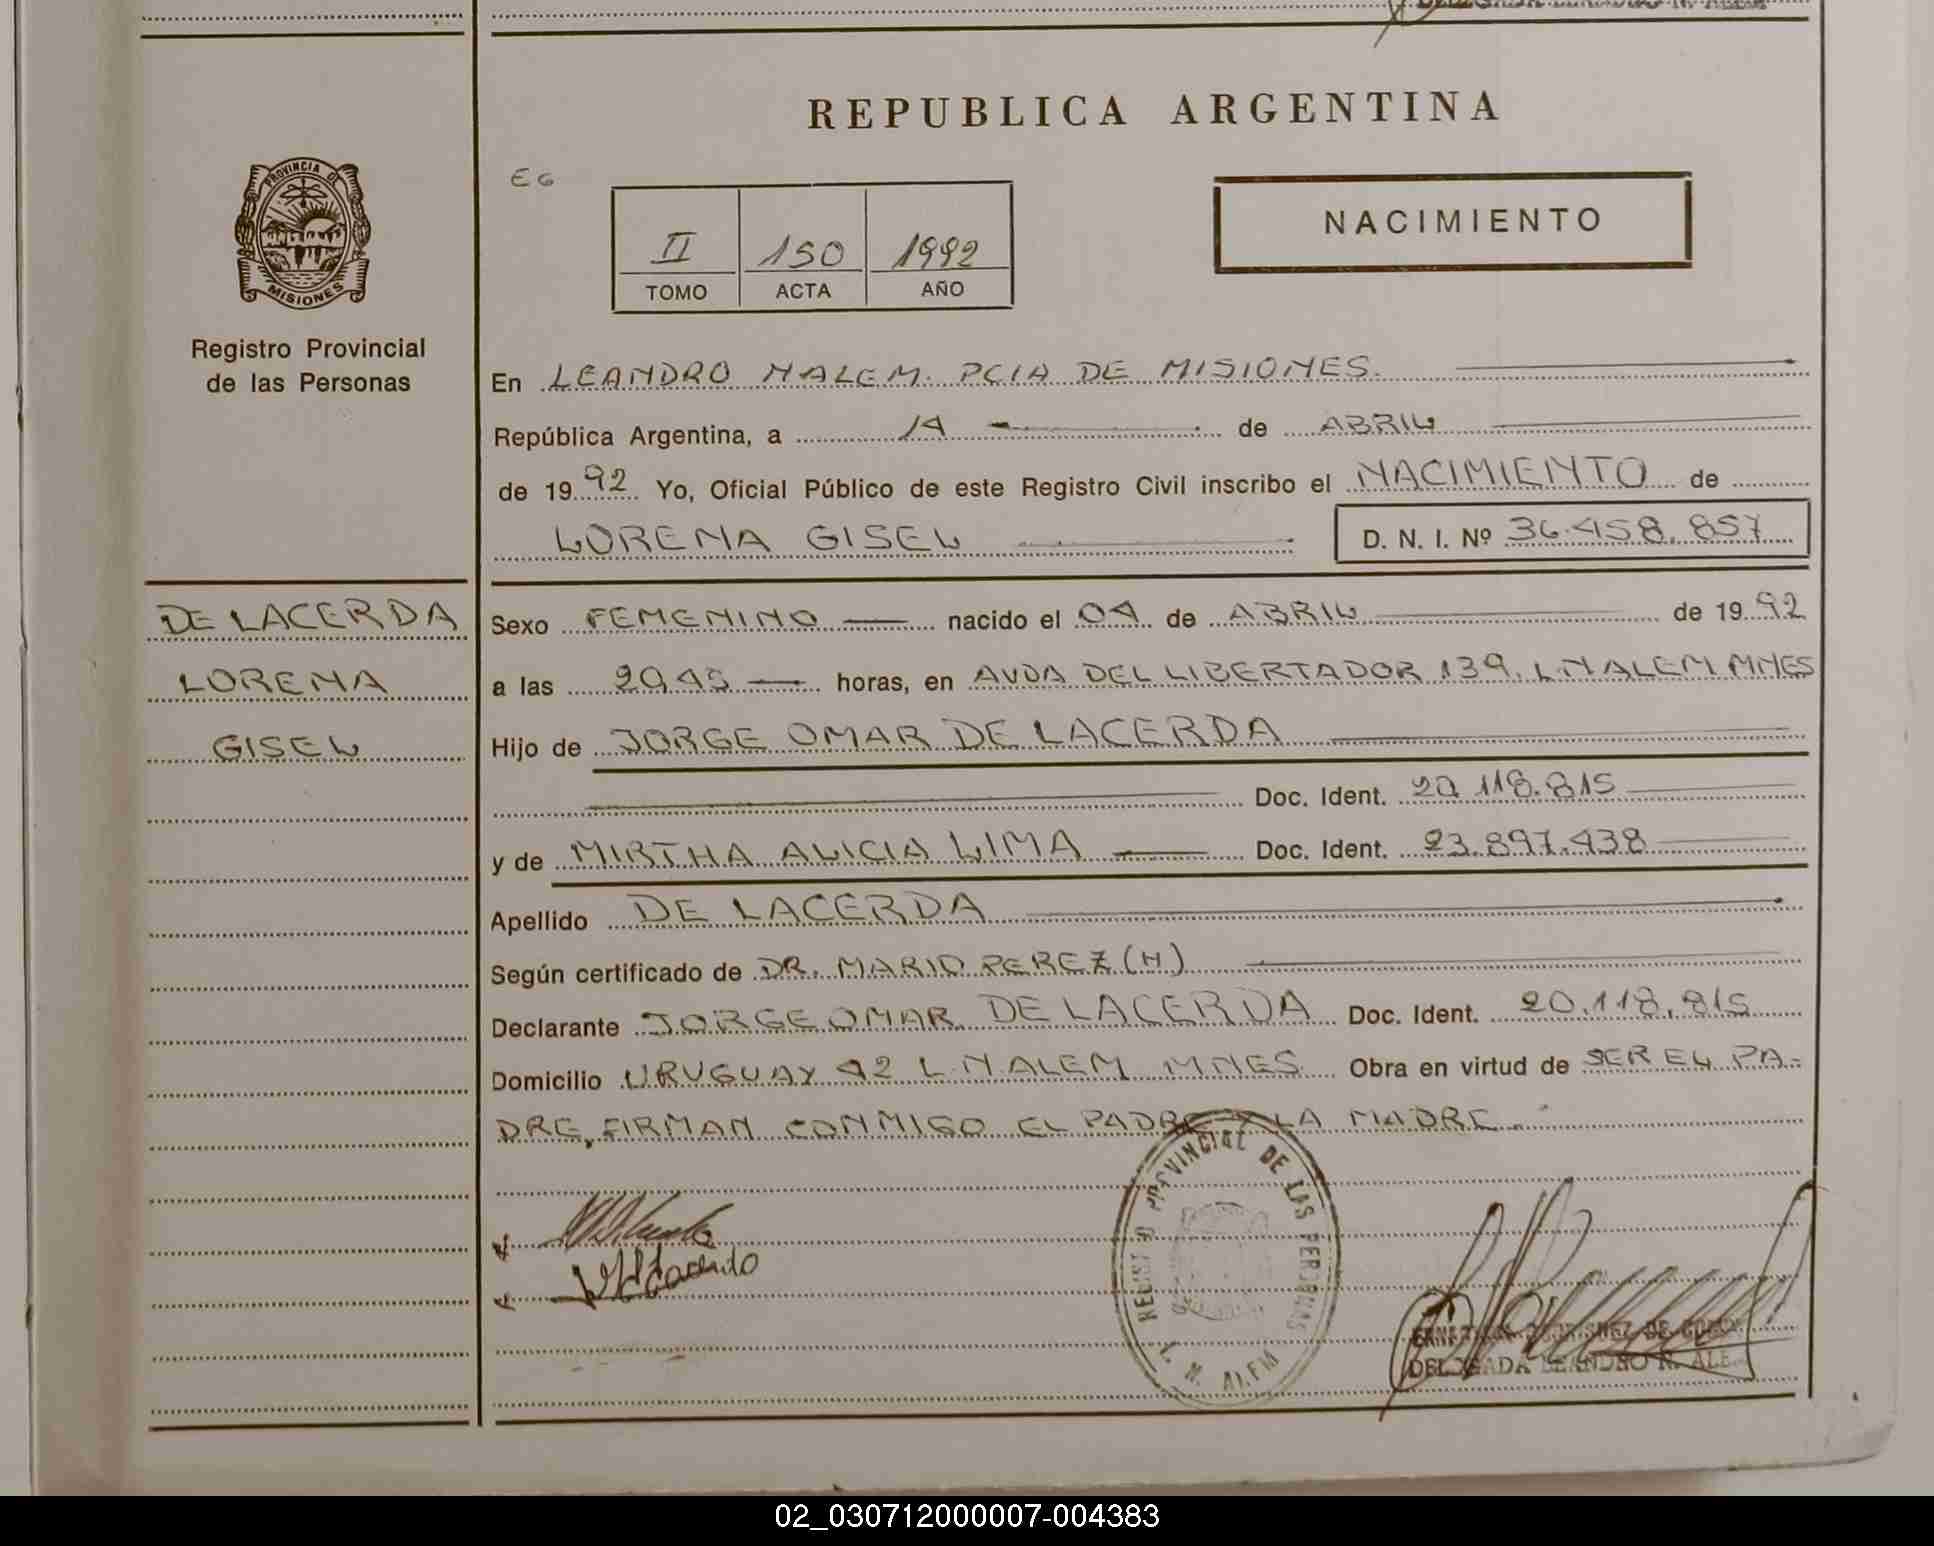 REPUBLICA ARGENTINA
PROVINCIA DE
MISIONES
Registro Provincial
de las Personas
EG
II 150 1992
TOMO ACTA AÑO
NACIMIENTO
En LEANDRO N ALEM. PCIA DE MISIONES.
República Argentina, a 14 de ABRIL
de 19 92 Yo, Oficial Público de este Registro Civil inscribo el NACIMIENTO de
LORENA GISEL D. N. I. Nº 36.458.857
DE LACERDA
LORENA
GISEL
Sexo FEMENINO nacido el 04 de ABRIL de 19 92
a las 20,45 horas, en AVDA DEL LIBERTADOR 139. L N ALEM MNES
Hijo de JORGE OMAR DE LACERDA
Doc. Ident. 20.118.815
y de MIRTHA ALICIA LIMA Doc. Ident. 23.897.438
Apellido DE LACERDA
Según certificado de DR. MARIO PEREZ (H)
Declarante JORGE OMAR DE LACERDA Doc. Ident. 20.118.815
Domicilio URUGUAY 42 L. N ALEM MNES Obra en virtud de SER EL PA-
DRE, FIRMAN CONMIGO EL PADRE Y LA MADRE.
REGISTRO PROVINCIAL DE LAS PERSONAS
L. N. ALEM
DELEGADA LEANDRO N. ALEM
02_030712000007-004383